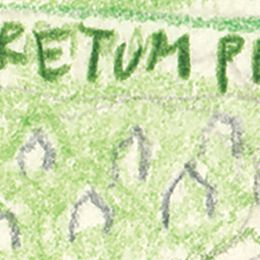 RETUM PE